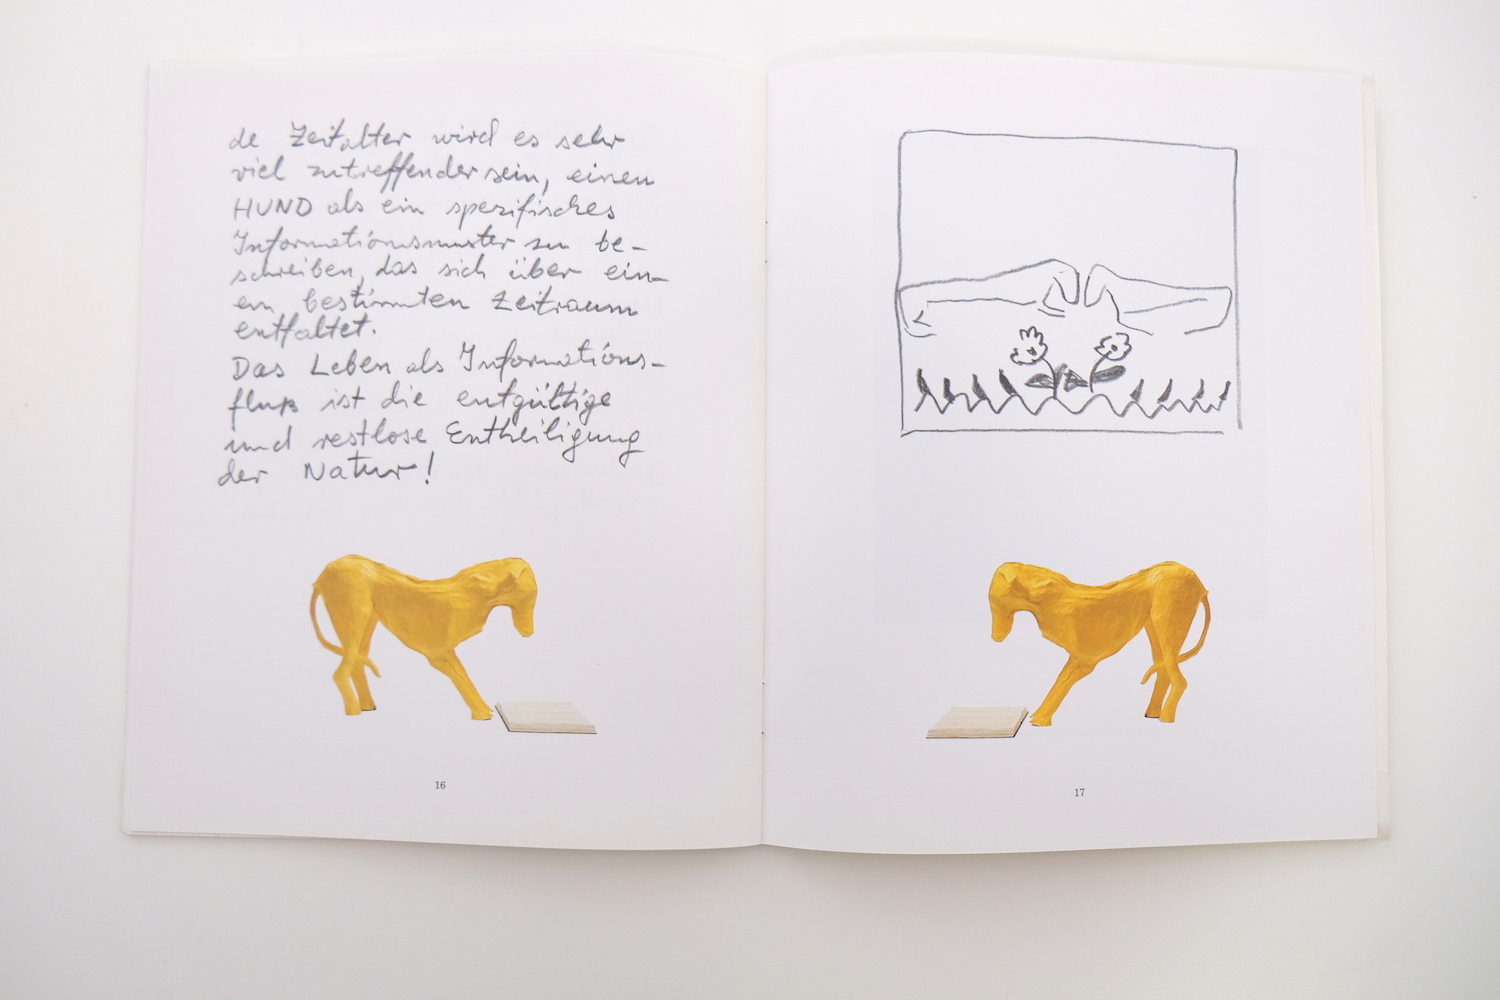 de Zeitalter wird es sehr
viel zutreffender sein, einen
HUND als ein spezifisches
Informationsmuster zu be-
schreiben, das sich über ein-
en bestimmten Zeitraum
entfaltet.
Das Leben als Informations-
fluß ist die entgültige
und restlose Entheiligung
der Natur!
16
17